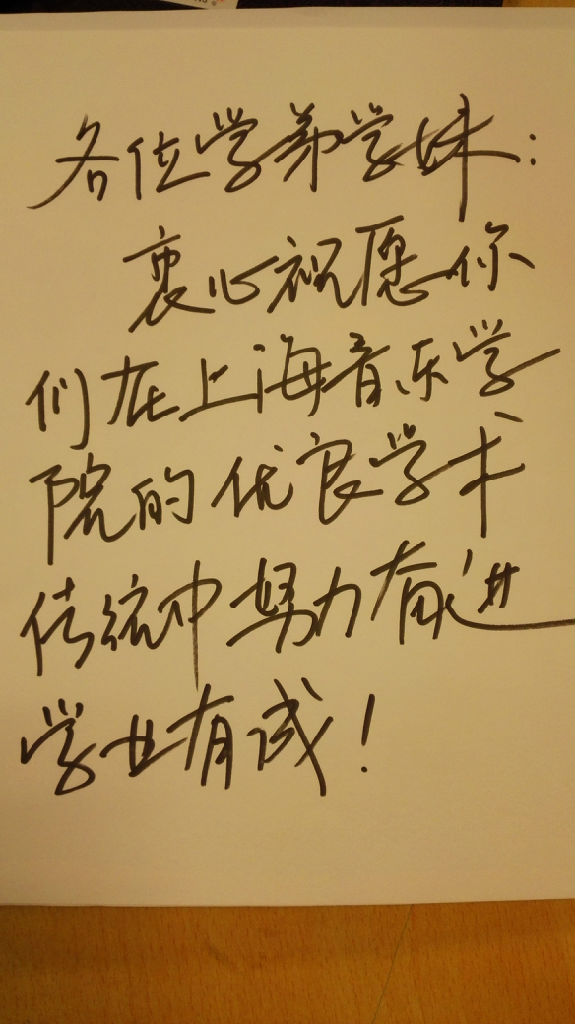 各位学弟学妹：
衷心祝愿你
们在上海音乐学
院的优良学术
传统中努力奋进
学业有成！